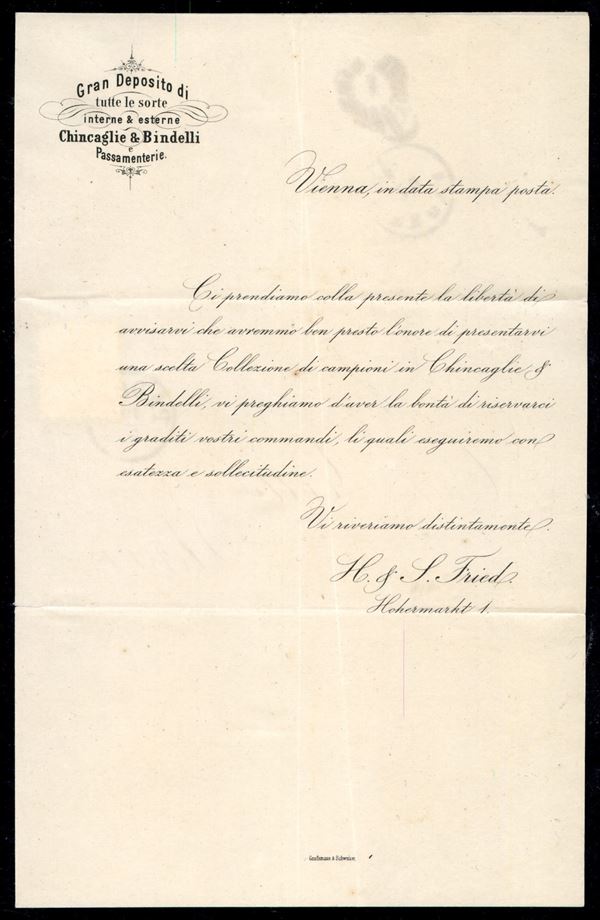 Gran Deposito di
tutte le sorte
interne & esterne
Chincaglie & Bindelli
e
Passamenterie.
Vienna, in data stampa posta.
Ci prendiamo colla presente la libertà di
avvisarvi che avremmo ben presto l'onore di presentarvi
una scelta Collezione di campioni in Chincaglie &
Bindelli, vi preghiamo d'aver la bontà di riservarci
i graditi vostri commandi, li quali eseguiremo con
esatezza e sollecitudine.
Vi riveriamo distintamente.
H. & S. Fried.
Hohermarkt 1.